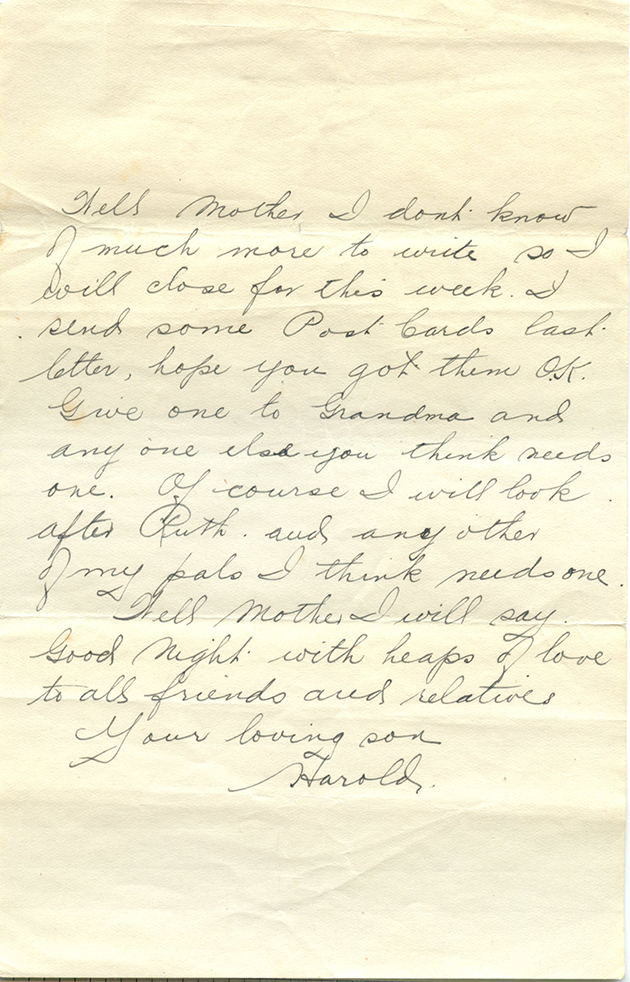 Well Mother I dont know
of much more to write so I
will close for this week. I
send some Post Cards last
letter, hope you got them O.K.
Give one to Grandma and
any one else you think needs
one. Of course I will look
after Ruth. and any other
of my pals I think needs one.
Well Mother I will say.
Good Night with heaps of love
to all friends and relatives
Your loving son
Harold.